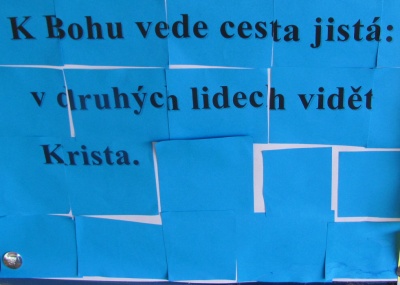 K Bohu vede cesta jistá:
v druhých lidech vidět
Krista.